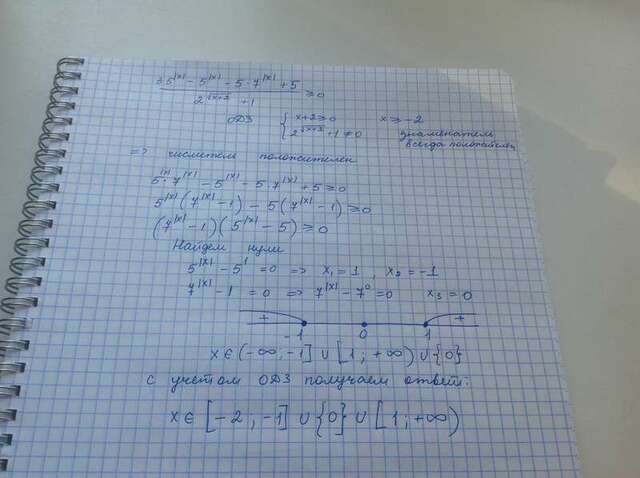 35^|x| - 5^|x| - 5·7^|x| + 5
2^√(x+2) + 1
≥ 0
ОДЗ { x+2≥0 x ≥ -2
2^√(x+2) + 1 ≠ 0 знаменатель
всегда положителен
=> числитель положителен
5^|x| · 7^|x| - 5^|x| - 5·7^|x| + 5 ≥ 0
5^|x| (7^|x| - 1) - 5 (7^|x| - 1) ≥ 0
(7^|x| - 1) (5^|x| - 5) ≥ 0
Найдем нули
5^|x| - 5^1 = 0 => x₁ = 1, x₂ = -1
7^|x| - 1 = 0 => 7^|x| - 7^0 = 0 x₃ = 0
+ +
-1 0 1
x ∈ (-∞, -1] ∪ [1; +∞) ∪ {0}
с учетом ОДЗ получаем ответ:
x ∈ [-2, -1] ∪ {0} ∪ [1; +∞)